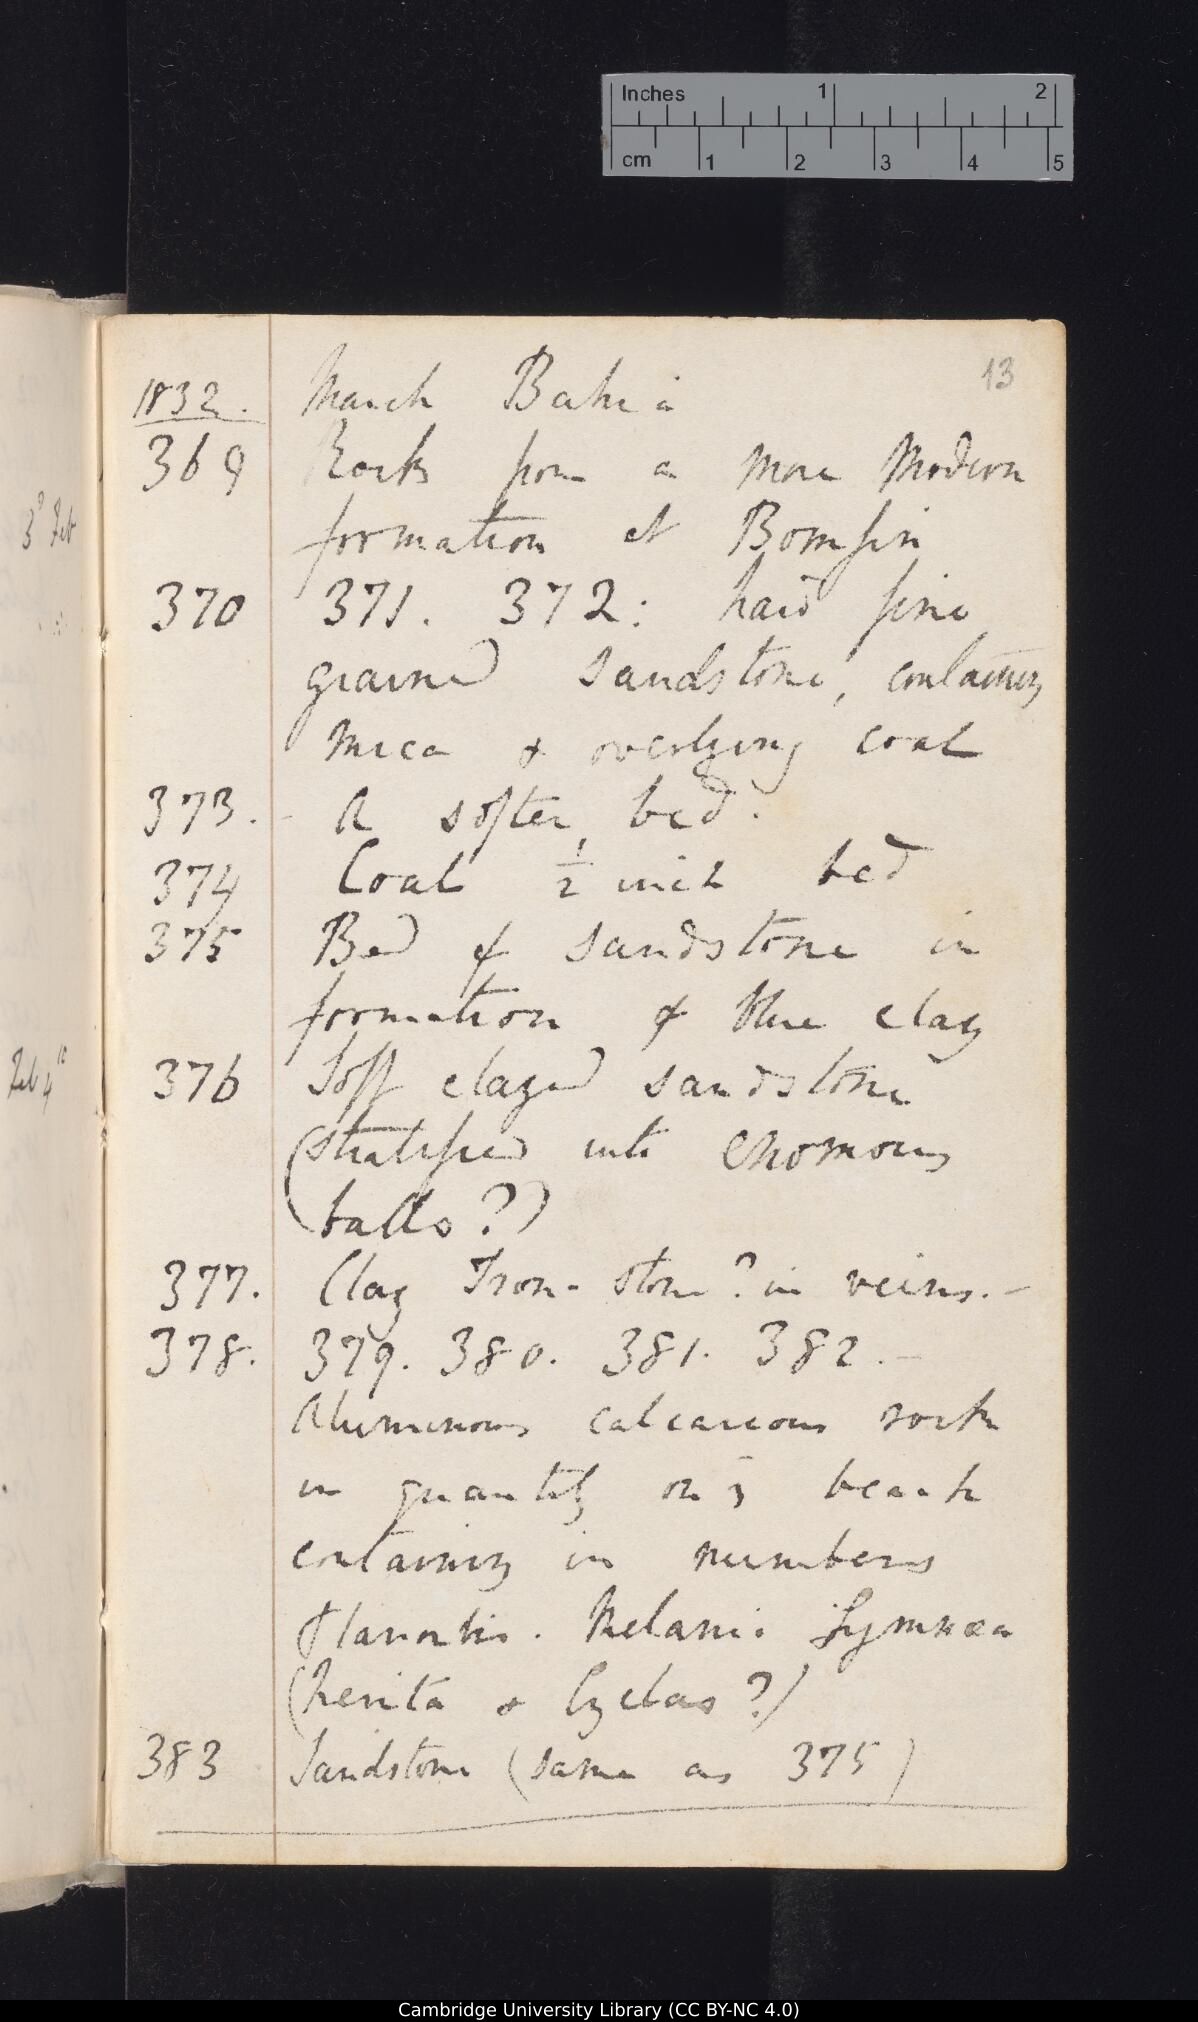 Inches 1 2
cm 1 2 3 4 5
13
1832. March Bahia
369 Rocks from a more modern
formation at Bomfin
370 371. 372: hard fine
grained sandstone, containing
mica & overlying coal
373. - A softer bed.
374 Coal 1/2 inch bed
375 Bed of sandstone in
formation of blue clay
376 Soft clayed sandstone
(stratified into enormous
balls?)
377. Clay Iron-stone? in veins.—
378. 379. 380. 381. 382.—
Aluminous calcareous rock
in quantity on ye beach
containing in numbers
Planorbis. Melania Lymnæa
(Nerita & Cyclas?)
383 Sandstone (same as 375)
3d Feb
Feb 4th
Cambridge University Library (CC BY-NC 4.0)